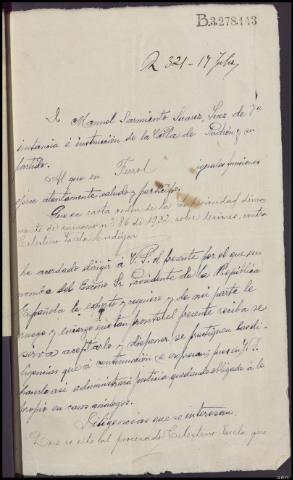 B.3.278.113
R 321-17 July
Manuel Sarmiento Suarez, Juez de 1ª
instancia é instrucción de la Villa de Padrón y su
partido.
Al que en Ferrol iguales funciones
ejerce atentamente saludo y participo:
Que en carta orden de la superioridad
del sumario nº 86 de 1932, sobre contra
Celestino
he acordado dirigir á V.S. el presente por el que en
nombre del Excmo Sr. Presidente de la República
Española le exhorto y requiero y de mi parte le
ruego y encargo que tan pronto el presente reciba se
sirva aceptarlo y disponer se practiquen las di-
ligencias que á continuación se expresan pues en
hacerlo así administrará justicia quedando obligado á lo
propio en casos análogos.
Diligencias que se interesan
Que se cite al procesado Celestino que